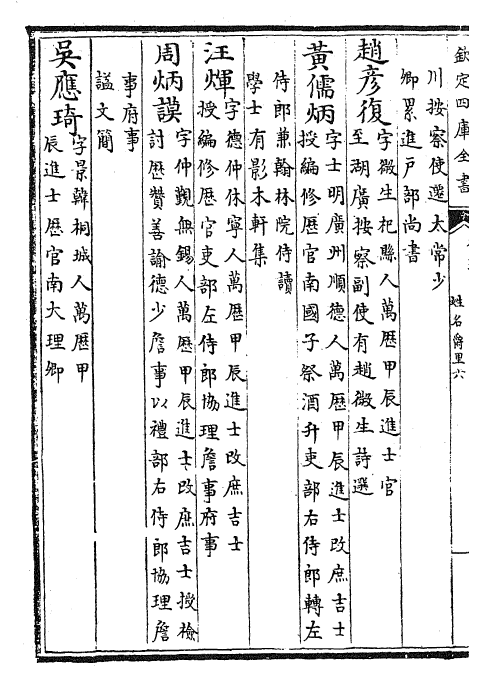 欽定四庫全書
姓名爵里六
川按察使遷太常少
卿累進戶部尚書
趙彦復
字㣲生杞縣人萬歴甲辰進士官
至湖廣按察副使有趙㣲生詩選
黃儒炳
字士明廣州順德人萬歴甲辰進士改庶吉士
授編修歴官南國子祭酒升吏部右侍郎轉左
侍郎兼翰林院侍讀
學士有影木軒集
汪煇
字德仲休寧人萬歴甲辰進士改庶吉士
授編修歴官吏部左侍郎協理詹事府事
周炳謨
字仲覲無錫人萬歴甲辰進士改庶吉士授檢
討歴贊善諭德少詹事以禮部右侍郎協理詹
事府事
諡文簡
吳應琦
字景韓桐城人萬歴甲
辰進士歴官南大理卿